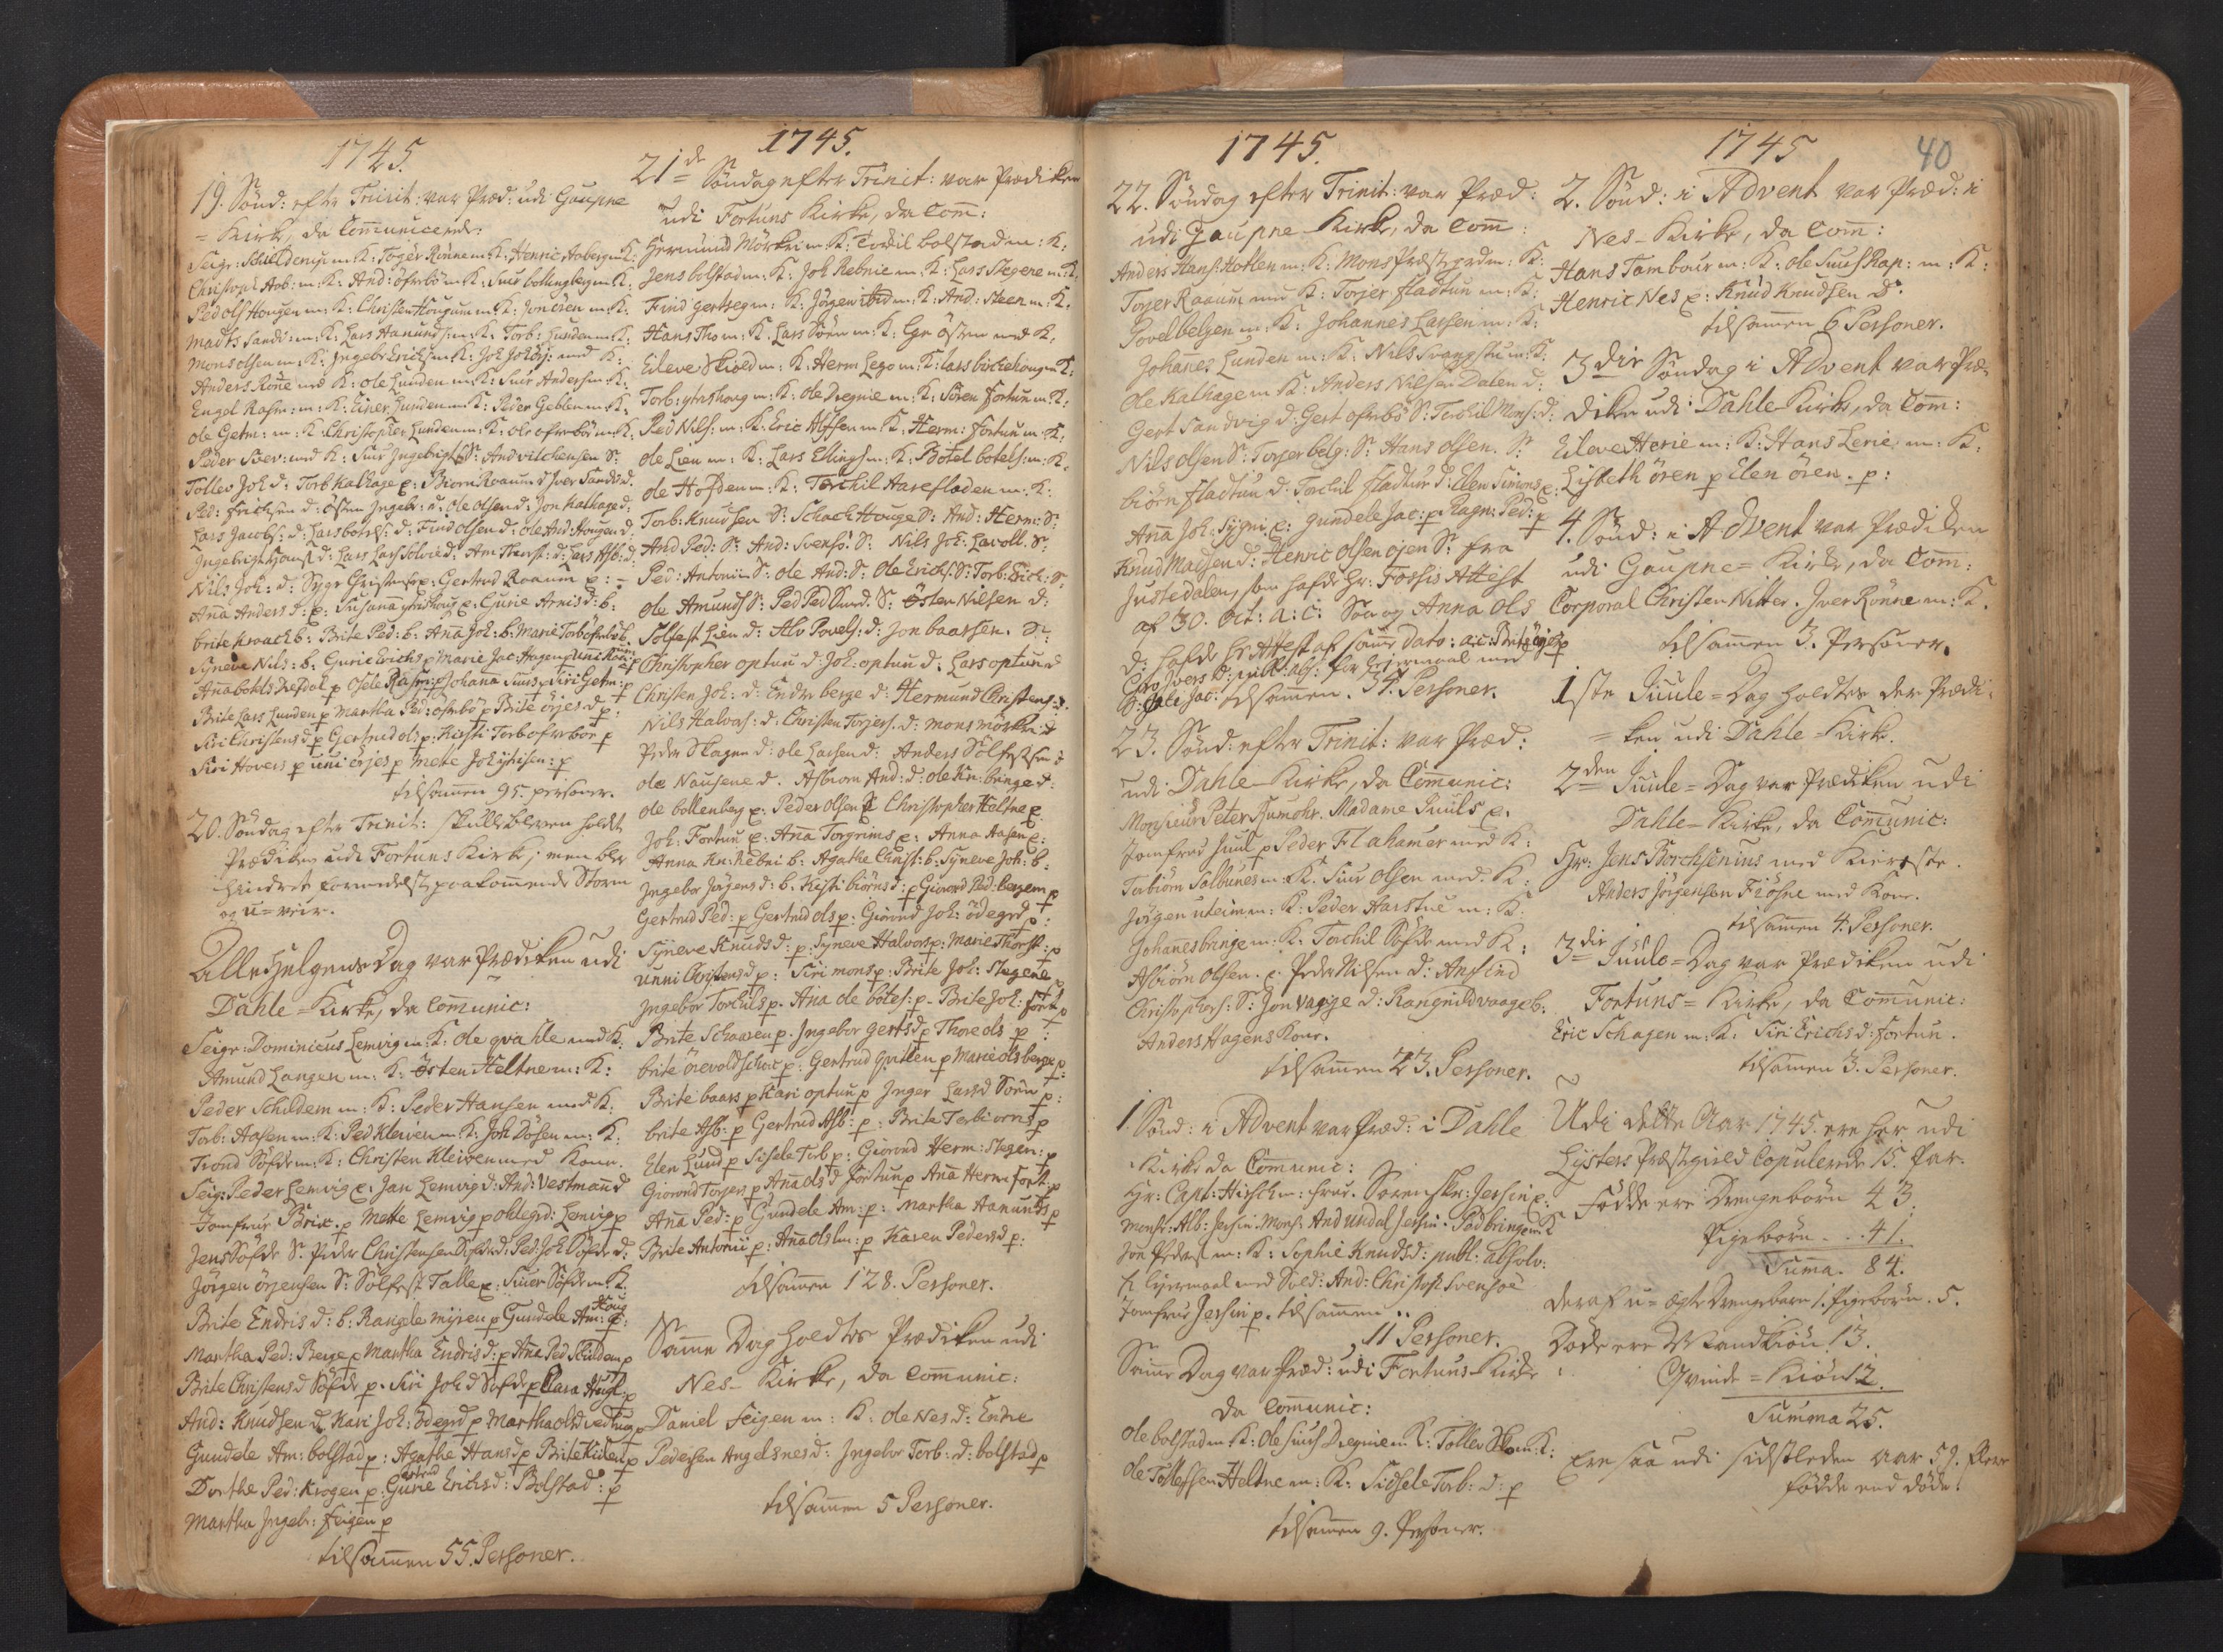 1745.
19. Sönd: efter Trinit: var Præd: udi Gaupne
= Kirke, da Communicerede:
Christopher Aab: m: K: And: öfrebö m: K:
Ped Olss Hougen m: K: Christen Hougum m: K: Jon Ören m: K:
Madts Sandv: m: K: Lars Hanund m: K: Torb: Hunden m: K:
Mons olsen m: K: Ingebr: Erichs m: K: Joh Joh med K:
Anders Röne med K: ole Lunden m: K: Siur Anders m: K:
Engel Rasm: m: K: Einer Lunden m: K: Peder Geblen m: K:
ole Getm: m: K: Christopher Lunden m: K: ole ofrebö m: K:
Peder Siver: med K: Siur Ingebrigts S: And vilchensen S:
Tollev Joh d: Torb Kalhage e: Biorn Roaum d Iver Sandv d.
Ped: Erichsen d: östen Ingebr: d: ole olsen d: Jon Kalhage d:
Lars Jacobs: d: Lars botels: d: Find olsen d: ole And: Hougen d:
Nils Joh: d: Gertrud Roaum e:
Anna Anders d: e: Susanna e: Gurie Arnis d: b:
brite kroach b: Brite Ped: b: Anna Joh: b: Marie Torb öfrebö b.
Synneve Nils: b: Gurie Erichs p Marie Jac: Hagen p
Anna botels p Osele Rasm: p Johanna Siurs p Siri Getm: p
Brite Lars Lunden p Martha Ped: ofrebö p Brite örjes d p:
Siri Christens d p Gertrud ols p: Kirsti Torb ofrebö p
Siri Hovers p uni örjes p Mette Joh p
tilsammen 95. personer.
20. Söndag efter Trinit: skulle bleven holdt
Prædiken udi Fortuns Kirke, men blev
hindret formedelst paakommende Storm
og u=veir.
Alle Helgens Dag var Prædiken udi
Dahle = Kirke, da Communic:
Seigr: Dominicus Lemvig m: K: Ole qvahle med K:
Amund Langen m: K: Östen Heltne m: K:
Peder Schildem m: K: Peder Hansen med K:
Torb: Aasen m: K: Ped Kleiven m: K: Joh Dösen m: K:
Trond Söfde m: K: Christen Kleiven med Kone.
Seig: Peder Lemvig e: Jan Lemvig d: And: Vestmann d
Jomfrue Brix. p Mette Lemvig p Lemvig p
Jens Söfde S. Peder Christensen Söfde d: Ped: Joh Söfde d:
Jörgen örjensen S: Sölfest Talle e: Siver Söfde m: K:
Brite Endris d: b: Rangele mijren p Gundele Am: Houg p:
Martha Ped: Berge p Martha Endris d: p Anna Ped Schildem p
Brite Christens d Söfde p. Siri Joh d Söfde p Clara p
And: Knudsen d. Kari Joh: ödegrd p Martha ols d p
Gundele Am: bolstad p: Agathe Hans d p Brite p
Dorthe Ped: Krogen p: Gurie Erichs d: Bolstad: p
Martha Ingebr: Feigen p
tilsammen 55. Personer.
1745.
21de Söndag efter Trinit: var Prædiken
udi Fortuns Kirke, da Com:
Germund Mörkri m: K: Torkil bolstad m: K:
Jens bolstad m: K: Joh Rebnie m: K: Lars Stegere m: K.
Find m: K: Jörgen ibid m: K: And: Steen m: K.
Hans Tho m: K. Lars Sörn m: K: östen med K.
Eileve Skiold m: K. Herm Lego m: K: Lars birkehougen K:
Torb: ytrehoug m: K: ole Dregnie m: K: Sören Fortun m: K:
Ped Nils: m: K: Eric Alfsen m: K: Herm: Fortun m: K:
ole Lien m: K: Lars Ellings m: K: Botel botels: m: K.
ole Hofden m: K: Torchil Hareflaaden m: K:
Torb: Knudsen S: Schack Houge S: And: Herm: S:
And Ped: S: And: Svens: S: Nils Joh: Lavoll: S:
Ped: Antonii S: Ole And: S: Ole Erichs: S: Torb: Erich: S:
ole Amunds S: Ped Ped Sund: S: Östen Nilsen d:
Solfest Lien d: Alv Povels: d: Jon baarsen. S:
Christopher optun d: Joh: optun d: Lars optun d
Christen Joh: d: Endre berge d: Hermund Christens: d.
Nils Halvors: d: Christen Torjers. d: mons mörkri: d
Peder Skagen d: ole Larsen d: Anders Sölfestsen d
ole Nausene d. Asbiorn And: d: ole Kn: bringe d:
ole bollenberg e: Peder olsen S Christopher Heltne e:
Joh: Fortun e. Anna Torgrims e: Anna Aasen e:
Anna Kn: Rebni b: Agathe Christ: b: Syneve Joh: b.
Ingebor Jörgens d: b: Kirsti biörns d: p Giorond Ped: bergem p
Gertrud Ped: p Gertrud ols p: Giörond Joh: ödegrd p:
Syneve Knuds d: p. Syneve Halvors p: Marie Thorst: p
Unni Christens d p: Siri mons p: Brite Joh: Stegene p
Ingebor Torkils p. Anna ole botes: p. Brite Joh: Fort: p
Brite Schaaren p: Ingebor Gerts d p Thore ols p:
brite p: Gertrud Gutten p Marie ols berge p:
Brite baars p Kari optun p Inger Lars d Sörn p:
brite Asb: p Gertrud Asb: p: Brite Terbiorns p
Elen Lund p Sisele Torb p: Giorond Herm: Stegen: p
Giorond Torjers p Anna ols d Fortun p Anna Herm: fort: p
Anna Ped: p Gundele Am: p: Martha Hanunds p
Brite Antonii p: Anna ols Lun: p Karen Peders d p:
tilsammen 128. Personer.
Samme Dag holdtes Prædiken udi
Nes= Kirke, da Communic:
Daniel Feigen m: K: Ole Nes d: Endre
Pedersen Angelsnes d: Ingebor Torb: d: bolstad p
tilsammen 5 Personer.
1745.
22. Söndag efter Trinit: var Præd:
udi Gaupne Kirke, da Com:
Anders Hans: Hotlen m: K: Mons Præstegrd m: K:
Torger Raaum med K: Torjer fladtun m: K:
Povel belgen m: K: Johannes Larsen m: K:
Johannes Lunden m: K: Nils m: K:
Ole Kalhage m: K: Anders Nilsen Dalen d:
Gert Sandvig d: Gert ofrebö S: Torchil Mons: d:
Nils olsen S: Torjer belg: S: Hans olsen. S:
biörn fladtun d: Torchil fladtun d: Elen Simons e:
Anna Joh: e: Gundele Jac: p. Ragn: Ped: p
Knud Madsen d: Henric Olsen öjen S: fra
Justedalen, som hafde Hr: Fosses Attest
af 30. Oct: a: c: Saa og Anna Ols
d: hafde Attest af samme dato: a: c:
tilsammen. 34. Personer.
23. Sönd: efter Trinit: var Præd:
udi Dahle Kirke, da Communic:
Monsieur Peter Rumohr. Madame Juuls e.
Jomfrue Juul p Peder Flahamer med K:
Torbiörn Salbunes m: K. Siur Olsen med K:
Jörgen uteim m: K: Peder Harstue m: K:
Johannes bringe m: K. Torchil Söfde med K:
Asbiörn olsen. e: Peder Nilsen d: Ansind
Christophers: S: Jon Vagge d: Rangnild vaage b.
Anders Hagens Kone.
tilsammen 23. Personer.
1. Sönd: i Advent var Præd: i Dahle
Kirke da Communic:
Hr: Capt: Hirsch m: Frue. Sorenskr: Jersin e:
Monsr: Alb: Jersin. Mons: And Undal Jersin. Ped bringe m K
Jon Peders m: K: Sophie Knuds d: publ: absolv:
f. Leiermaal med Sold: And: Christoph Svensöe
Jomfrue Jersin p. tilsammen..
11 Personer.
Samme Dag var Præd: udi Fortuns Kirke
da Communic:
Ole bolstad m: K: Ole Siurs Dregnie m: K: Tollev m: K:
Ole Tollefsen Heltne m: K: Sidsele Torb: d: p
tilsammen 9. Personer.
1745
40
2. Sönd: i Advent var Præd: i
Nes Kirke, da Com:
Hans Tambour m: K: Ole Siurs Rap: m: K:
Henric Nes e: Knud Knudsen d.
tilsammen 6 Personer.
3die Söndag i Advent var Præ=
diken udi Dahle Kirke, da Com:
Eileve Herie m: K: Hans Lerie m: K.
Lisbeth ören p Elen ören. p:
4. Sönd: i Advent var Prædiken
udi Gaupne= Kirke, da Com:
Corporal Christen Nitter. Iver Rönne m: K.
tilsammen 3. Personer.
1ste Juule= Dag holdtes der Prædi
= ken udi Dahle= Kirke.
2den Juule= Dag var Prædiken udi
Dahle= Kirke, da Communic:
Hr: Jens Borchsenius med Kiereste.
Anders Jörgensen Fiösne med Kone.
tilsammen 4. Personer.
3die Juule= Dag var Prædiken udi
Fortuns= Kirke, da Communic:
Eric Schagen m: K. Siri Erichs d: Fortun.
tilsammen 3. Personer.
Udi dette Aar 1745. ere her udi
Lysters Præstegield Copulerede 15. Par.
Födde ere Drengebörn 43.
Pigebörn .. 41.
Suma. 84.
deraf u= ægte Drengebarn 1. Pigebörn. 5.
Döde ere Mandkiön. 13.
Qvinde= Kiön 12.
Summa 25.
Ere saa udi sidstleden Aar 59. flere
födde end döde.